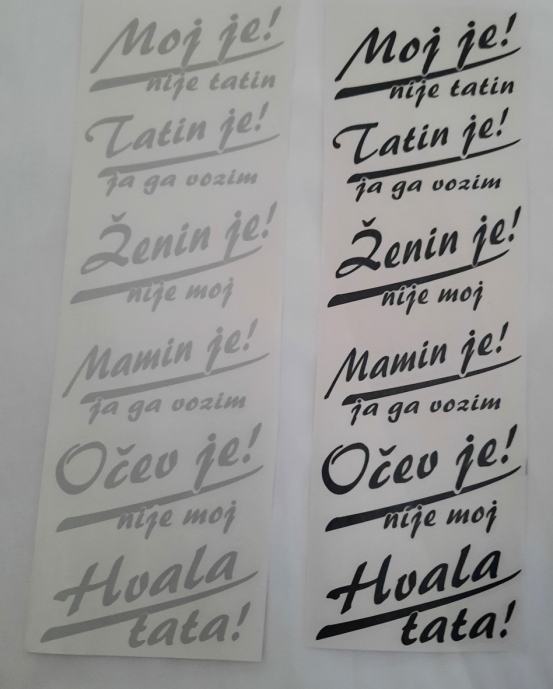 Moj je!
nije tatin
Tatin je!
ja ga vozim
Ženin je!
nije moj
Mamin je!
ja ga vozim
Očev je!
nije moj
Hvala
tata!
Moj je!
nije tatin
Tatin je!
ja ga vozim
Ženin je!
nije moj
Mamin je!
ja ga vozim
Očev je!
nije moj
Hvala
tata!